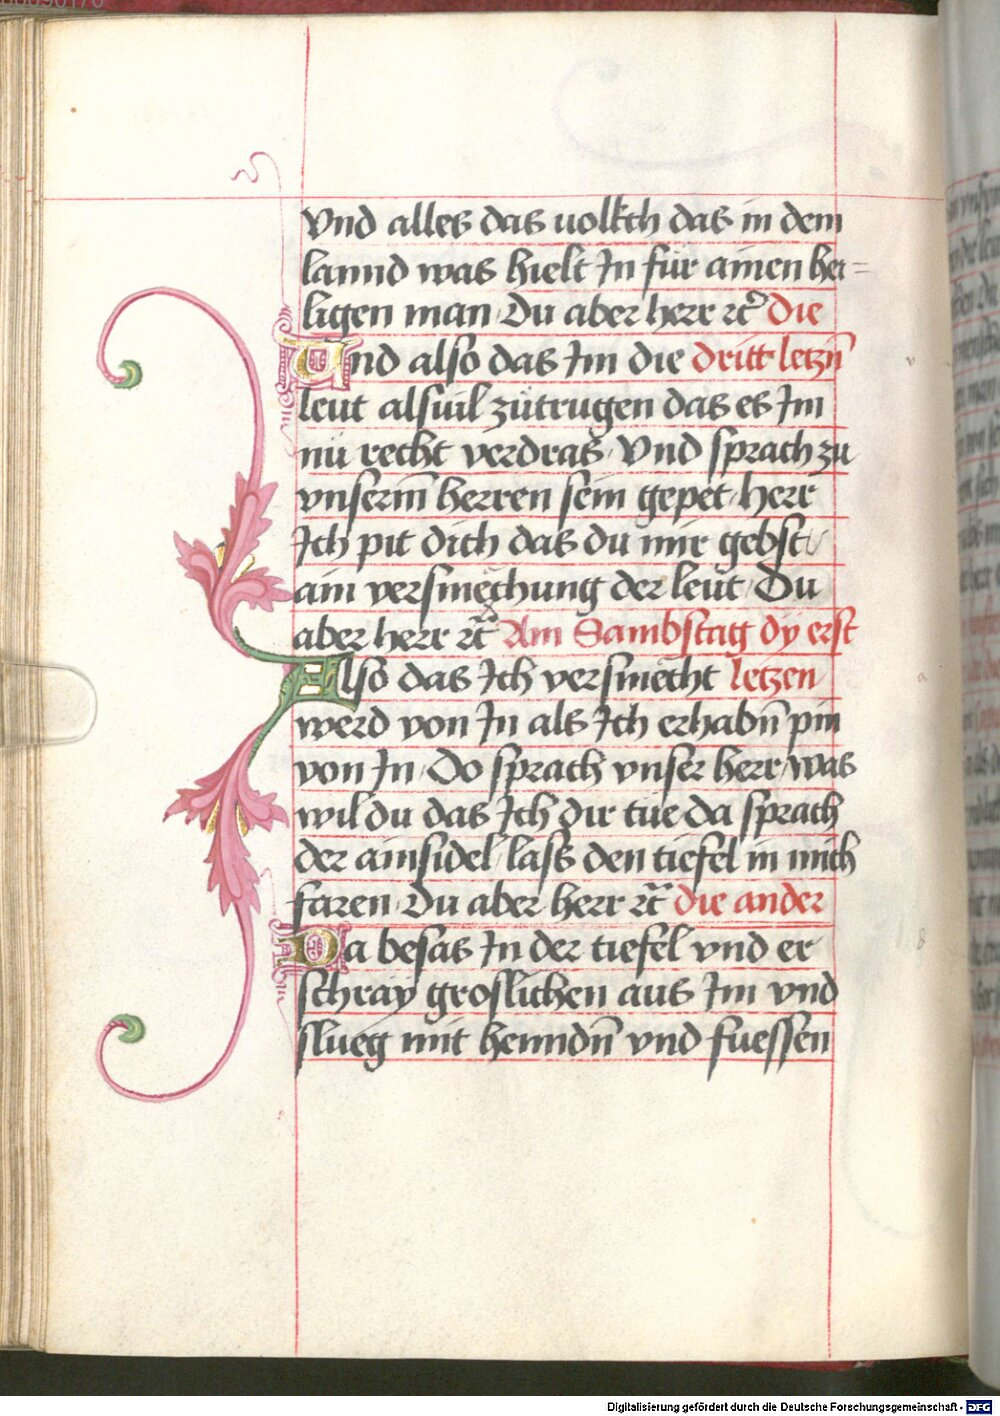 Vnd alles das uolkch das in dem
lannd was hielt In für ainen hei=
ligen man Du aber herr rc̃ die
Und also das Im die dritt letzn̄
leut alsuil zütrugen das es Im
nü recht verdras Vnd sprach zu
vnserm̄ herren sein gepet herr
Ich pit dich das du mir gebst
ain versmëchung der leut Du
aber herr rc̃ Am Sambstag dy erst
Also das Ich versmëcht letzen
werd von In als Ich erhabn̄ pin
von In Do sprach vnser herr was
wil du das Ich dir tüe da sprach
der ainsidel lass den tiefel in mich
faren Du aber herr rc̃ die ander
Da besas In der tiefel vnd er
schray groslichen aus Im vnd
slueg mit henndn̄ vnd fuessen
Digitalisierung gefördert durch die Deutsche Forschungsgemeinschaft - DFG